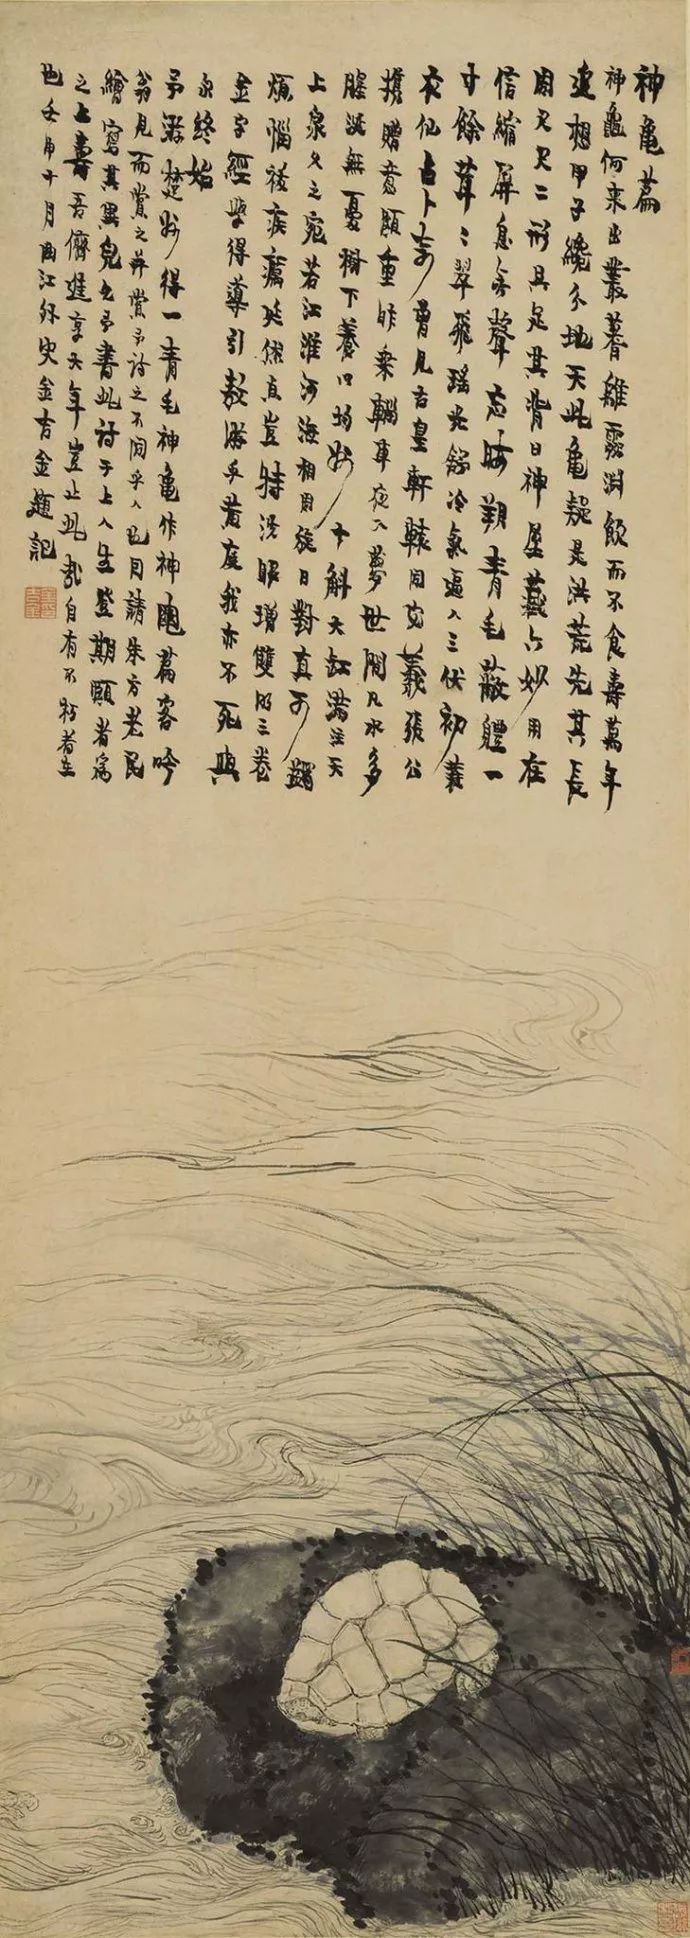 神龜篇
神龜何來出叢蓍離靈淵飲而不食壽萬年
逆想甲子纔分地天此龜疑是洪荒先其長
周尺尺二形具足其背曰神屋藏六妙用在
信縮屏息無聲忘晦朔青毛蔽體一
寸餘茸〻翠飛瑤光冷氣逼人三伏初蓑
衣仙占卜奇曾見古皇軒轅同宓羲張公
攜贈意頗重昨乘輜車夜入夢世間凡水多
腥涎無憂樹下養十斛大缸滿注天
上泉久之宛若江淮河海相周旋日對真可蠲
煩惱祛疾癘延保真豈特洗眼增雙明三卷
金字經學得導引敖游乎黃庭我亦不死與
永終始
予游楚得一青毛神龜作神龜篇客吟
翁見而賞之并賞予詩之不同乎人也因請朱方老民
繪寫其異皃令予書此詩于上人生登期頤者為
之上壽吾儕進享大年豈止此哉自有不朽者在
也壬申十月曲江外史金吉金題記